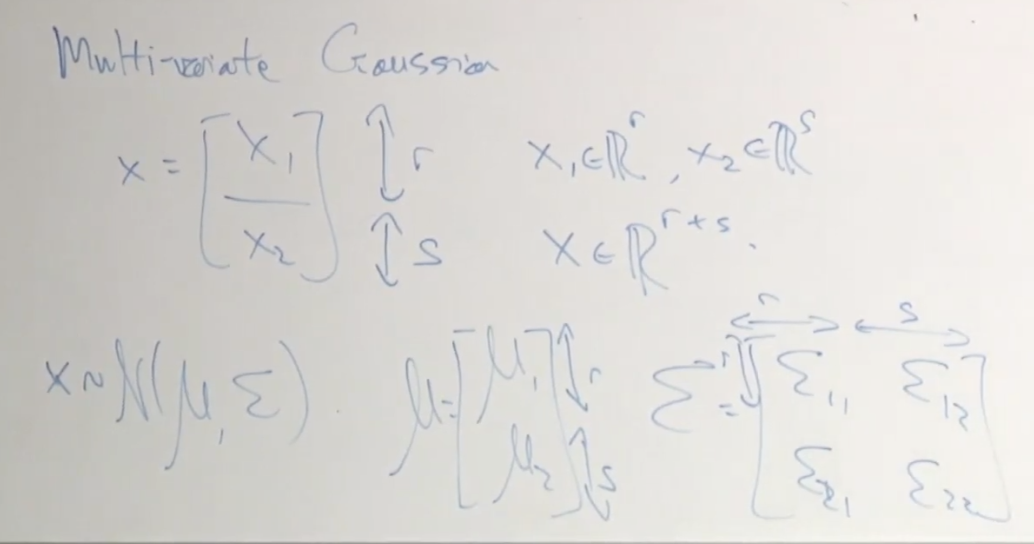 Multi-variate Gaussian
x = [x₁ / x₂] ↕ r ↕ s x₁ ∈ ℝʳ, x₂ ∈ ℝˢ
x ∈ ℝʳ⁺ˢ.
x ~ N(μ, Σ). μ = [μ₁ μ₂] ↕ r ↕ s r Σ = [Σ₁₁ Σ₁₂ Σ₂₁ Σ₂₂] ↔ r ↔ s